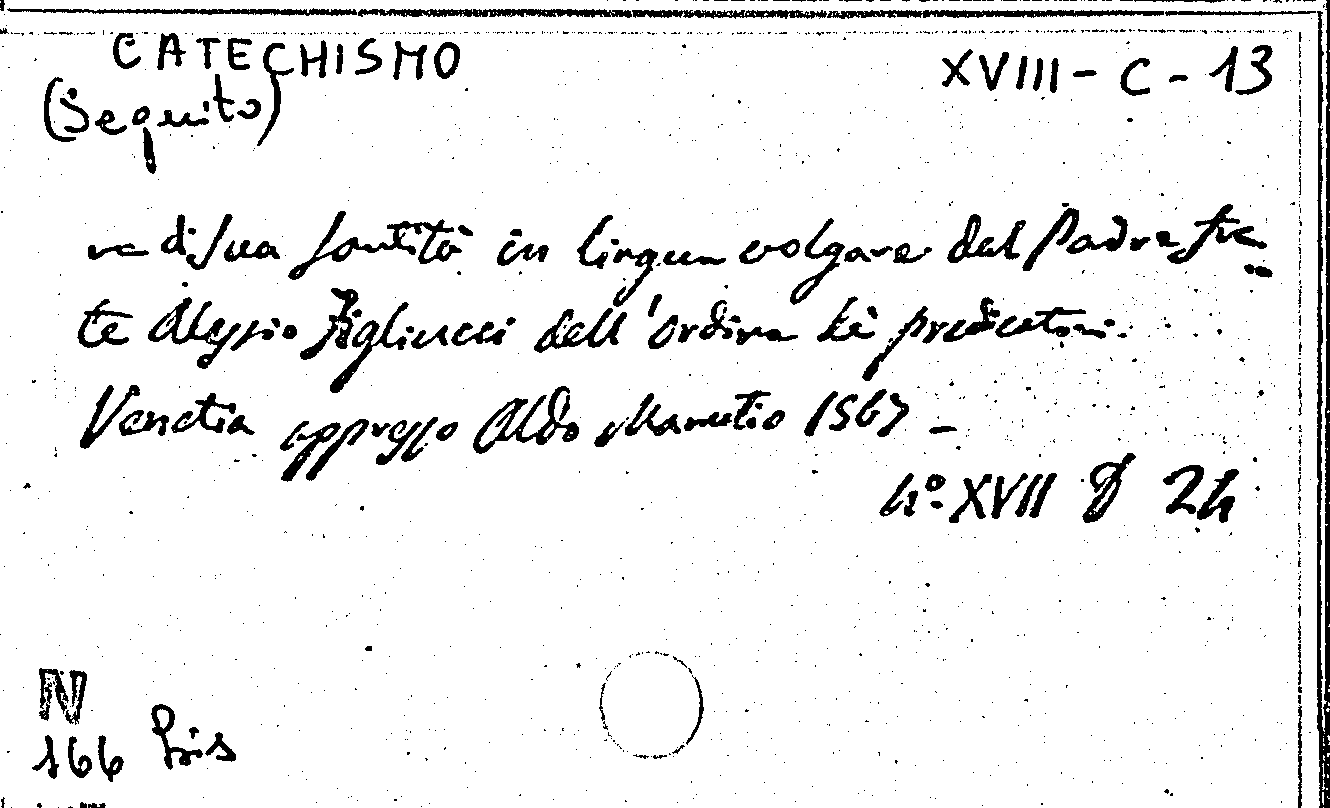 CATECHISMO
XVIII - C - 13
(Seguito)
re di Sua Santità in lingua volgare dal Padre fra
te Alessio Figliucci dell'ordine de predicatori.
Venetia appresso Aldo Manutio 1567 -
4º. XVII D 24
N
166 bis